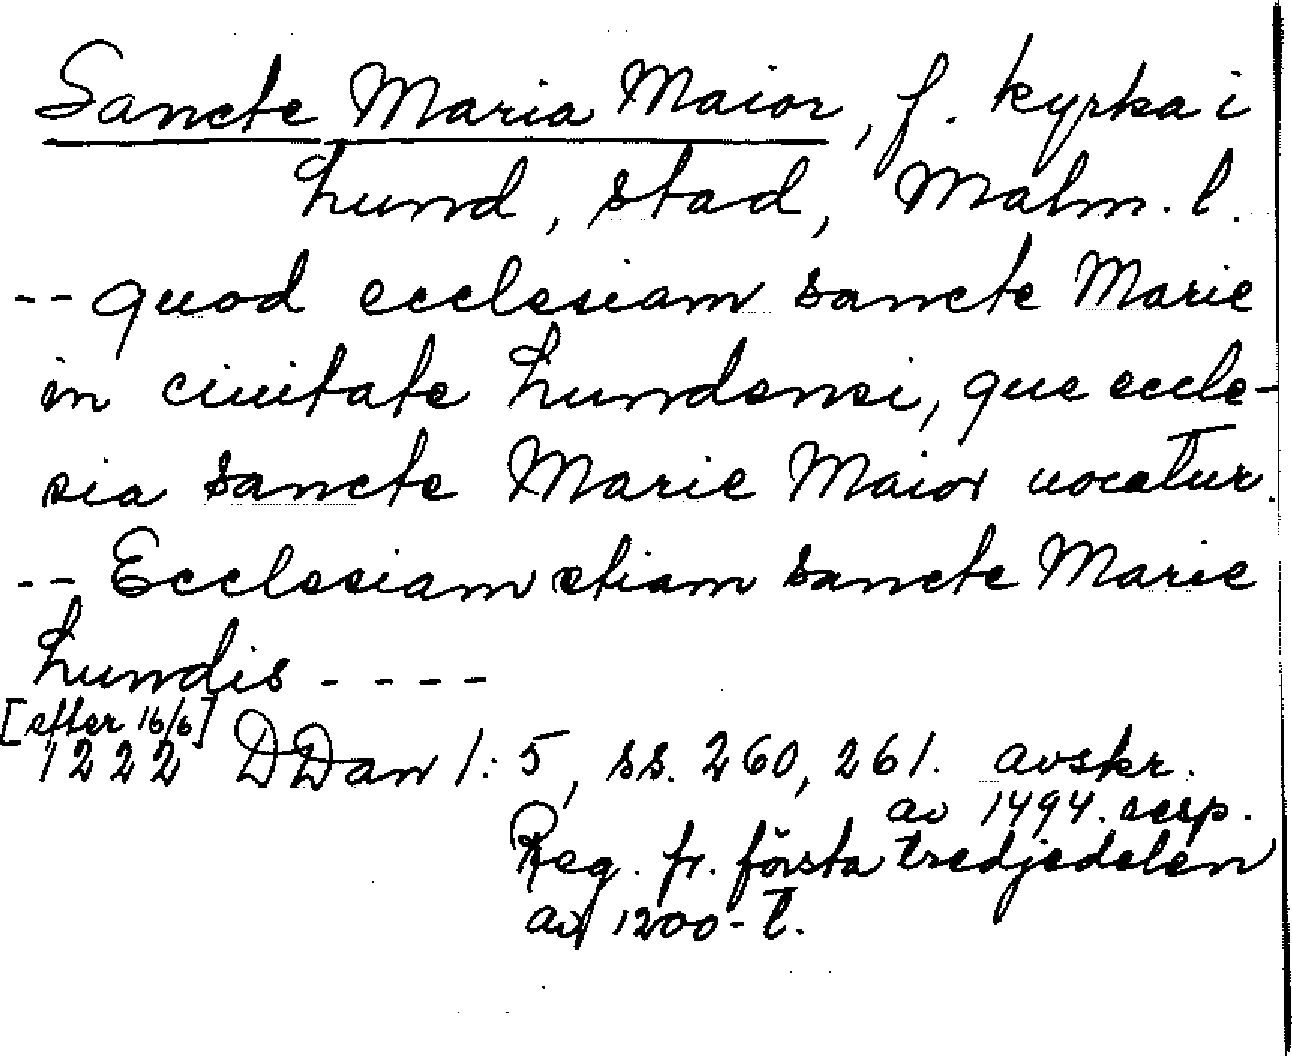 Sancte Maria Maior, f. kyrka i
Lund, stad, Malm. l.
-- quod ecclesiam sancte Marie
in ciuitate Lundensi, que eccle-
sia sancte Marie Maior uocatur.
-- Ecclesiam etiam sancte Marie
Lundis ----
[efter 16/6]
1222 DDan 1:5, ss. 260, 261. avskr.
av 1494. resp.
Reg. fr. första tredjedelen
av 1200-t.